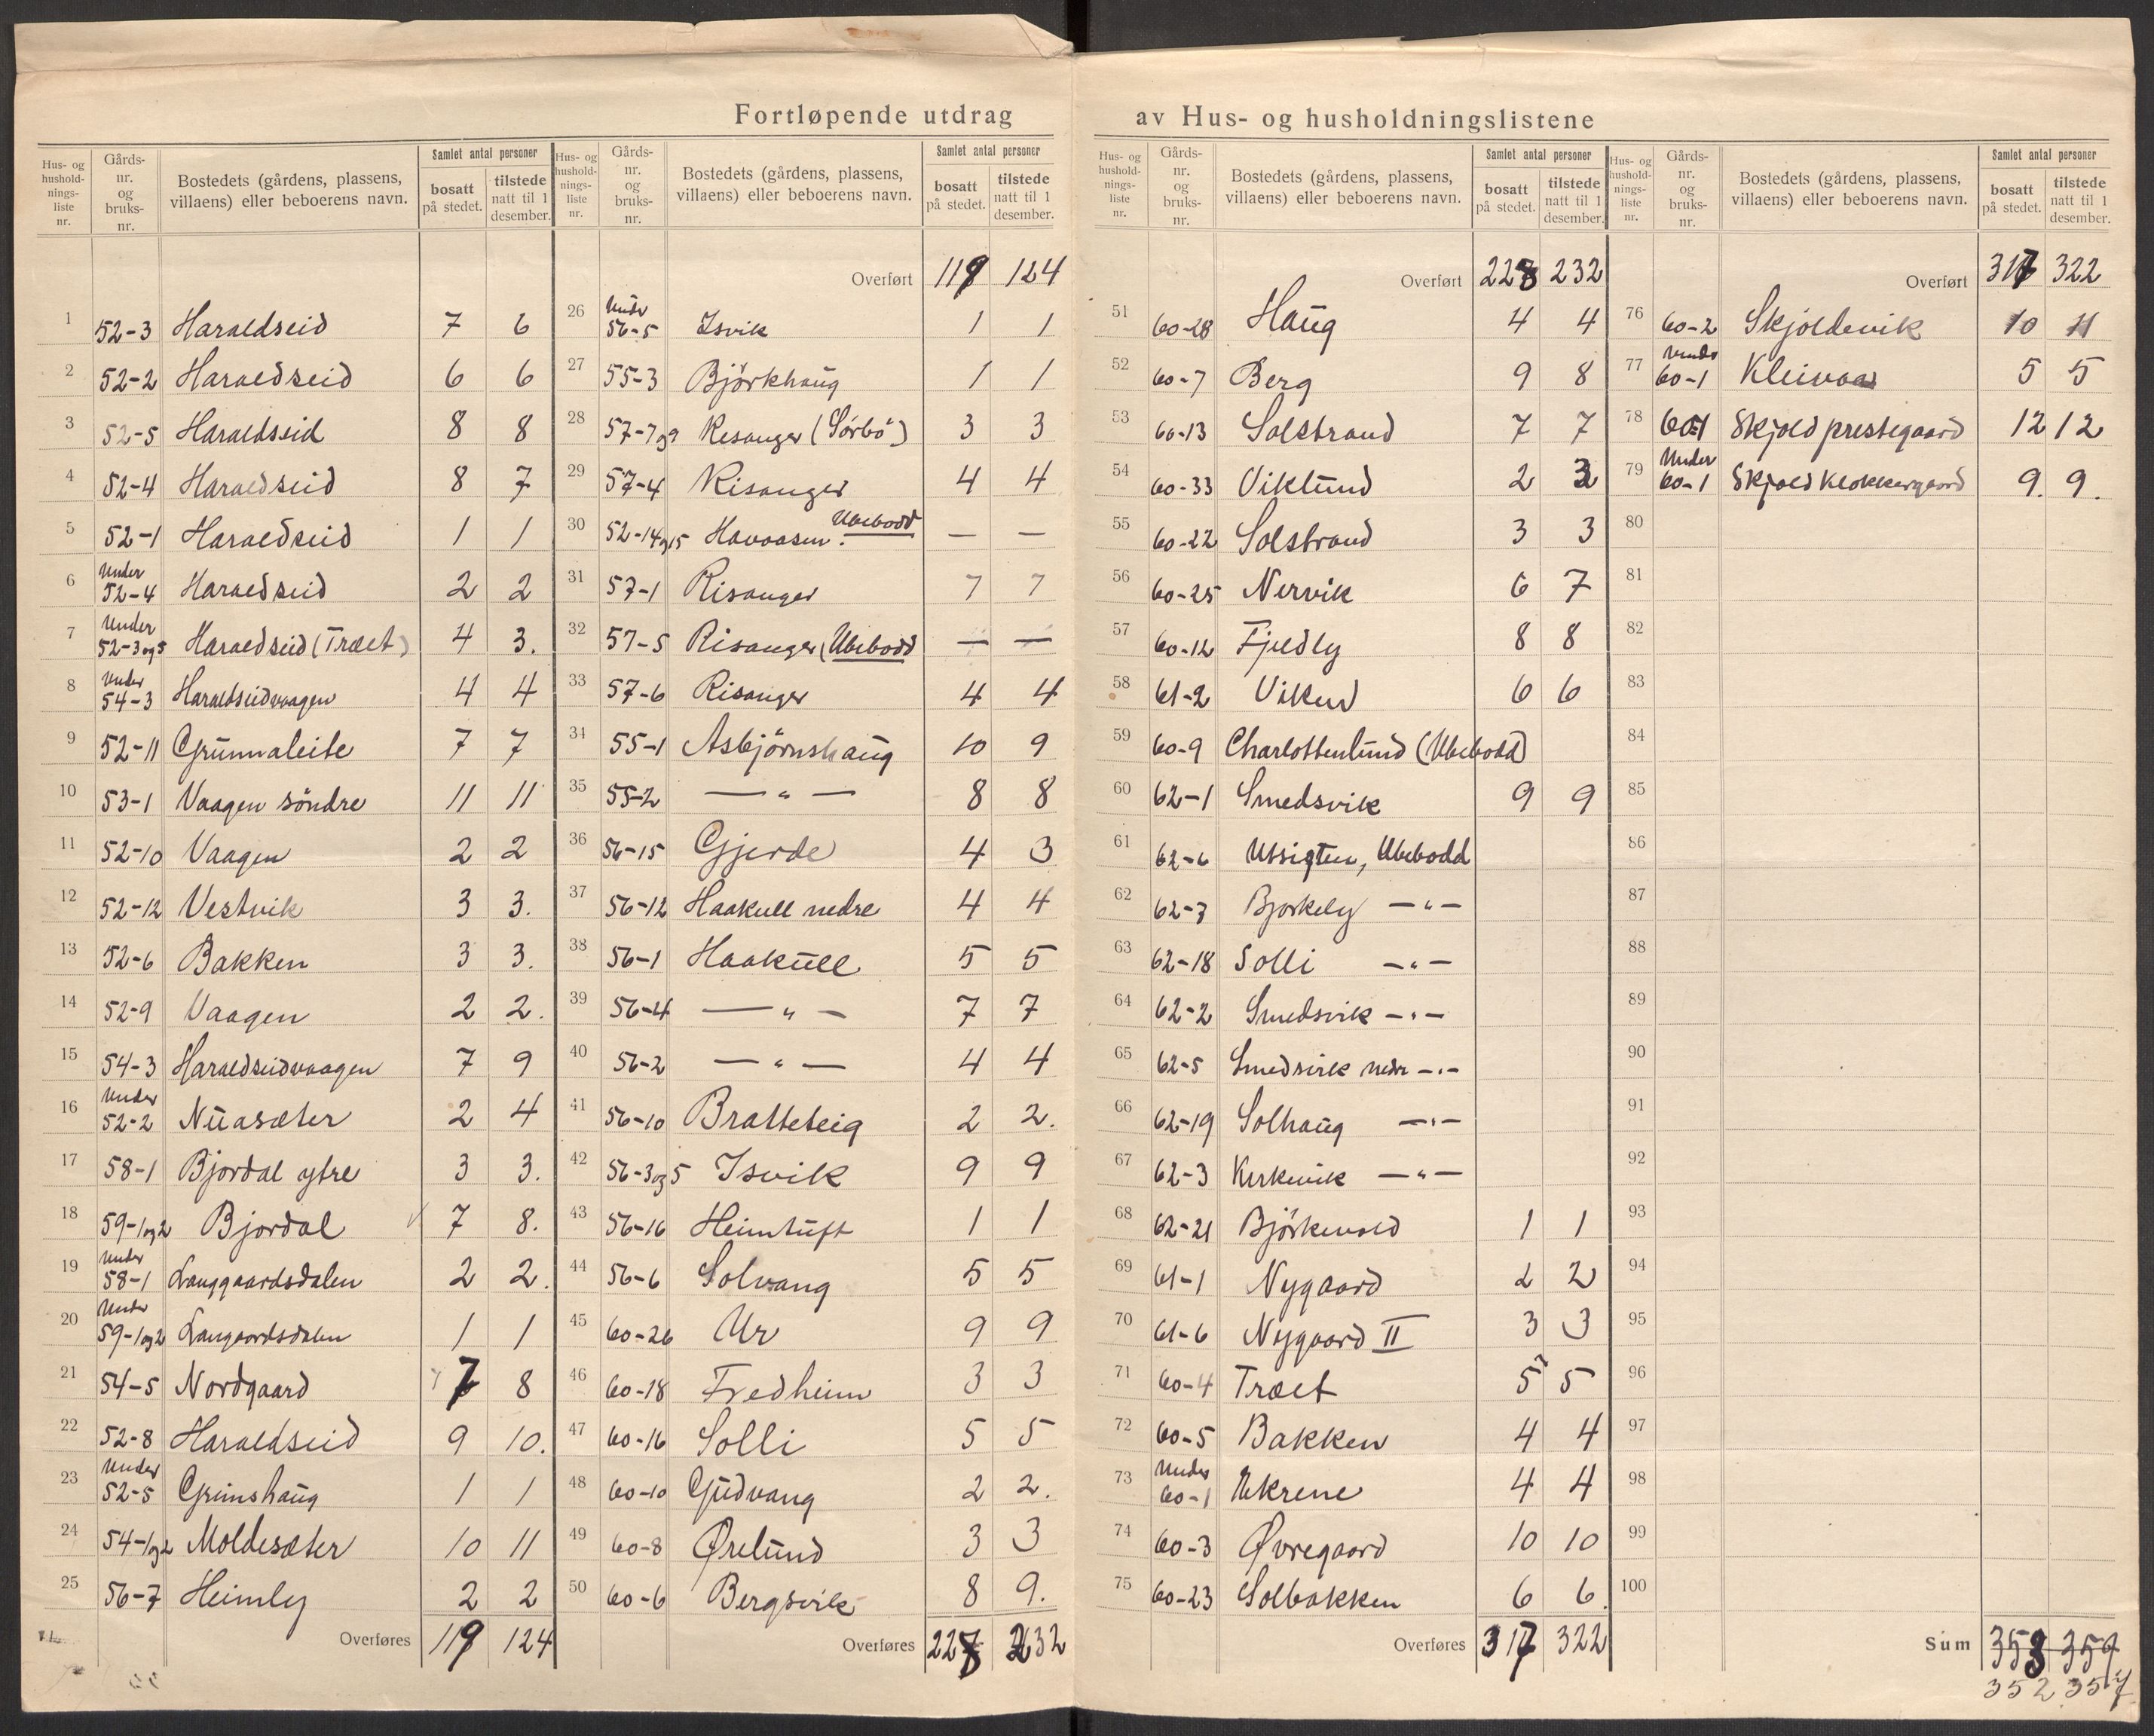 Fortløpende utdrag av Hus- og husholdningslistene
Hus- og husholdnings-liste nr. | Gårds-nr. og bruks-nr. | Bostedets (gårdens, plassens, villaens) eller beboerens navn. | Samlet antal personer bosatt på stedet. | tilstede natt til 1 desember.
1 52-3 Haraldseid 7 6
2 52-2 Haraldseid 6 6
3 52-5 Haraldseid 8 8
4 52-4 Haraldseid 8 7
5 52-1 Haraldseid 1 1
6 Under 52-4 Haraldseid 2 2
7 Under 52-3og5 Haraldseid (Træet) 4 3.
8 Under 54-3 Haraldseidvaagen 4 4
9 52-11 Grunnaleite 7 7
10 53-1 Vaagen söndre 11 11
11 52-10 Vaagen 2 2
12 52-12 Vestvik 3 3.
13 52-6 Bakken 3 3.
14 52-9 Vaagen 2 2.
15 54-3 Haraldseidvaagen 7 9
16 Under 52-2 Nuasæter 2 4
17 58-1 Bjordal ytre 3 3.
18 59-1og2 Bjordal 7 8.
19 Under 58-1 Langgaardsdalen 2 2.
20 Under 59-1og2 Langaardsdalen 1 1
21 54-5 Nordgaard 7 8
22 52-8 Haraldseid 9 10.
23 Under 52-5 Grimshaug 1 1
24 54-1og2 Moldesæter 10 11
25 56-7 Heimly 2 2
Overføres 119 124
Hus- og husholdnings-liste nr. | Gårds-nr. og bruks-nr. | Bostedets (gårdens, plassens, villaens) eller beboerens navn. | Samlet antal personer bosatt på stedet. | tilstede natt til 1 desember.
Overført 119 124
26 Under 56-5 Isvik 1 1
27 55-3 Björkhaug 1 1
28 57-7og9 Risanger (Sörbö) 3 3
29 57-4 Risanger 4 4
30 52-14og15 Havaasen. Ubebodd — —
31 57-1 Risanger 7 7
32 57-5 Risanger (Ubebodd — —
33 57-6 Risanger 4 4
34 55-1 Asbjörnshaug 10 9
35 55-2 — " — 8 8
36 56-15 Gjerde 4 3
37 56-12 Haakull nedre 4 4
38 56-1 Haakull 5 5
39 56-4 — " — 7 7
40 56-2 — " — 4 4
41 56-10 Bratteteig 2 2.
42 56-3og5 Isvik 9 9
43 56-16 Heimtuft 1 1
44 56-6 Solvang 5 5
45 60-26 Ur 9 9
46 60-18 Fredheim 3 3
47 60-16 Solli 5 5
48 60-10 Gudvang 2 2.
49 60-8 Ørelund 3 3
50 60-6 Bergsvik 8 9.
Overføres 228 232
Hus- og husholdnings-liste nr. | Gårds-nr. og bruks-nr. | Bostedets (gårdens, plassens, villaens) eller beboerens navn. | Samlet antal personer bosatt på stedet. | tilstede natt til 1 desember.
Overført 228 232
51 60-28 Haug 4 4
52 60-7 Berg 9 8
53 60-13 Solstrand 7 7
54 60-33 Viklund 2 3
55 60-22 Solstrand 3 3
56 60-25 Nervik 6 7
57 60-12 Fjeldly 8 8
58 61-2 Viken 6 6
59 60-9 Charlottenlund (Ubebodd)
60 62-1 Smedsvik 9 9
61 62-6 Utsigten, Ubebodd
62 62-7 Bjorkely — " —
63 62-18 Solli — " —
64 62-2 Smedsvik — " —
65 62-5 Smedsvik nedr — " —
66 62-19 Solhaug — " —
67 62-3 Kirkevik — " —
68 62-21 Björkevold 1 1
69 61-1 Nygaard 2 2
70 61-6 Nygaard II 3 3
71 60-4 Træet 5 5
72 60-5 Bakken 4 4
73 Under 60-1 Ekrene 4 4
74 60-3 Øvregaard 10 10
75 60-23 Solbakken 6 6.
Overføres 317 322
Hus- og husholdnings-liste nr. | Gårds-nr. og bruks-nr. | Bostedets (gårdens, plassens, villaens) eller beboerens navn. | Samlet antal personer bosatt på stedet. | tilstede natt til 1 desember.
Overført 317 322
76 60-2 Skjoldevik 10 11
77 Under 60-1 Kleivaa 5 5
78 60-1 Skjold prestegaard 12 12
79 Under 60-1 Skjold Klokkergaard 9. 9.
80
81
82
83
84
85
86
87
88
89
90
91
92
93
94
95
96
97
98
99
100
Sum 353 359
352 357